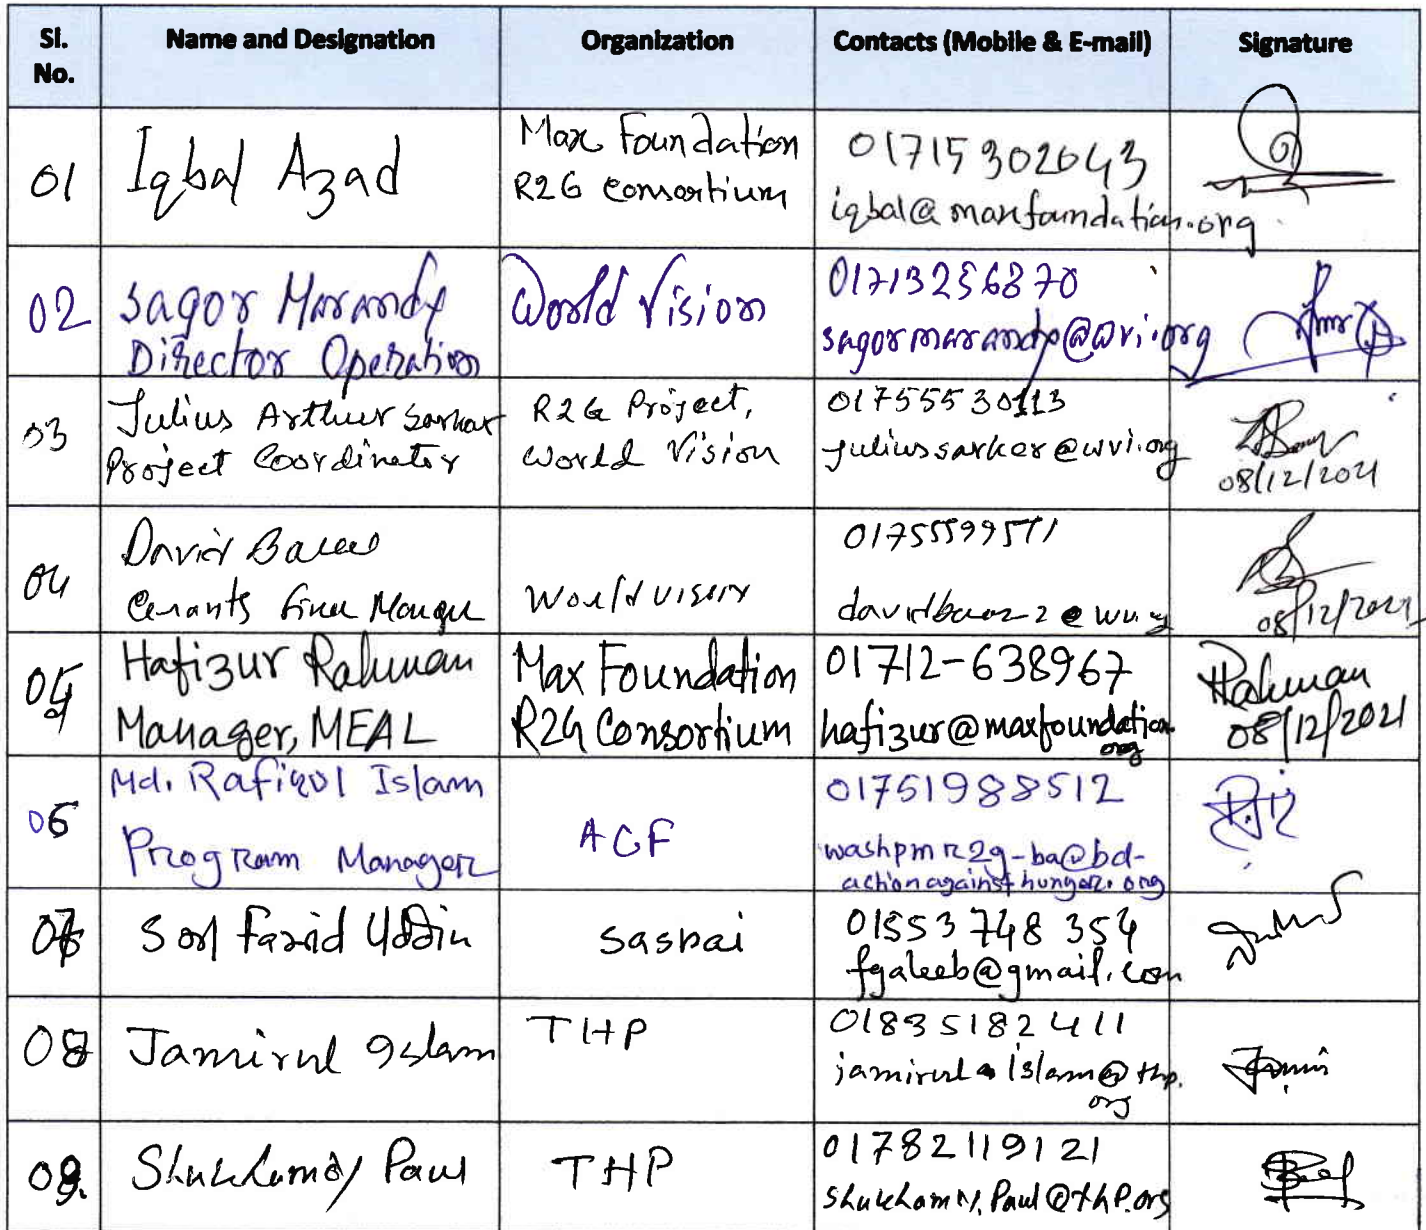 Sl. No.
Name and Designation
Organization
Contacts (Mobile & E-mail)
Signature
01
Iqbal Azad
Max Foundation
R2G Consortium
01715302043
iqbal@maxfoundation.org
02
Sagor Marandy
Director Operation
World Vision
01713256870
sagormarandy@wvi.org
03
Julius Arthur Sarkar
Project Coordinator
R2G Project,
World Vision
01755530113
juliussarker@wvi.org
08/12/2021
04
David
Grants Manager
World Vision
01755599511
08/12/2021
05
Hafizur Rahman
Manager, MEAL
Max Foundation
R2G Consortium
01712-638967
hafizur@maxfoundation.
org
Rahman
08/12/2021
06
Md. Rafiqul Islam
Program Manager
ACF
01751988512
washpmr2g-ba@bd-
actionagainsthunger.org
07
Farid Uddin
Sasrai
01553 748 354
fgaleeb@gmail.com
08
Jamirul Islam
THP
01835182411
jamirul.islam@thp.
org
09.
Shukhamoy Paul
THP
01782119121
shukhamoy.Paul@thp.org